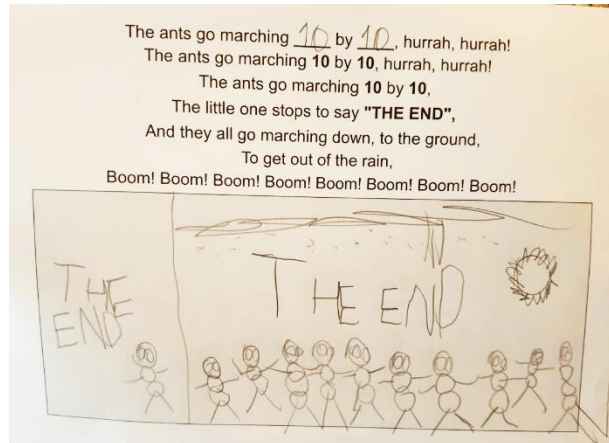 The ants go marching 10 by 10, hurrah, hurrah!
The ants go marching 10 by 10, hurrah, hurrah!
The ants go marching 10 by 10,
The little one stops to say "THE END",
And they all go marching down, to the ground,
To get out of the rain,
Boom! Boom! Boom! Boom! Boom! Boom! Boom! Boom!
THE
END
THE END